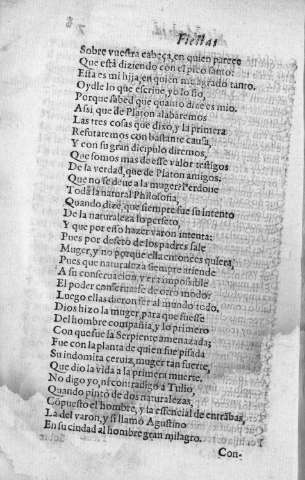 Fiestas
Sobre vuestra cabeça, en quien parece
Que està diziendo con el pico santo:
Essa es mi hija, en quien me agrado tanto.
Oydle lo que escriue, yo lo fio,
Porque sabed que quanto dize es mio.
Assi que de Platon alabaremos
Las tres cosas que dixo, y la primera
Refutaremos con bastante causa,
Y con su gran dicipulo diremos,
Que somos mas de esse valor testigos
De la verdad, que de Platon amigos:
Que no se deue a la muger? Perdone
Toda la natural Philosofia,
Quando dize, que siempre fue su intento
De la naturaleza lo perfeto,
Y que por esso hazer varon intenta:
Pues por defeto de los padres sale
Muger, y no porque ella entonces quiera,
Pues que naturaleza siempre atiende
A su conseruacion, y era impossible
El poder conseruarse de otro modo:
Luego ellas dieron ser al mundo todo.
Dios hizo la muger, para que fuesse
Del hombre compañia, y lo primero
Con que fue la Serpiente amenazada;
Fue con la planta de quien fue pisada
Su indomita ceruiz, muger tan fuerte,
Que dio la vida a la primera muerte.
No digo yo, ni contradigo a Tulio,
Quando pintò de dos naturalezas,
Cõpuesto el hombre, y la essencial de entrãbas,
La del varon, y si llamò Agustino
En su ciudad al hombre gran milagro.
Con-